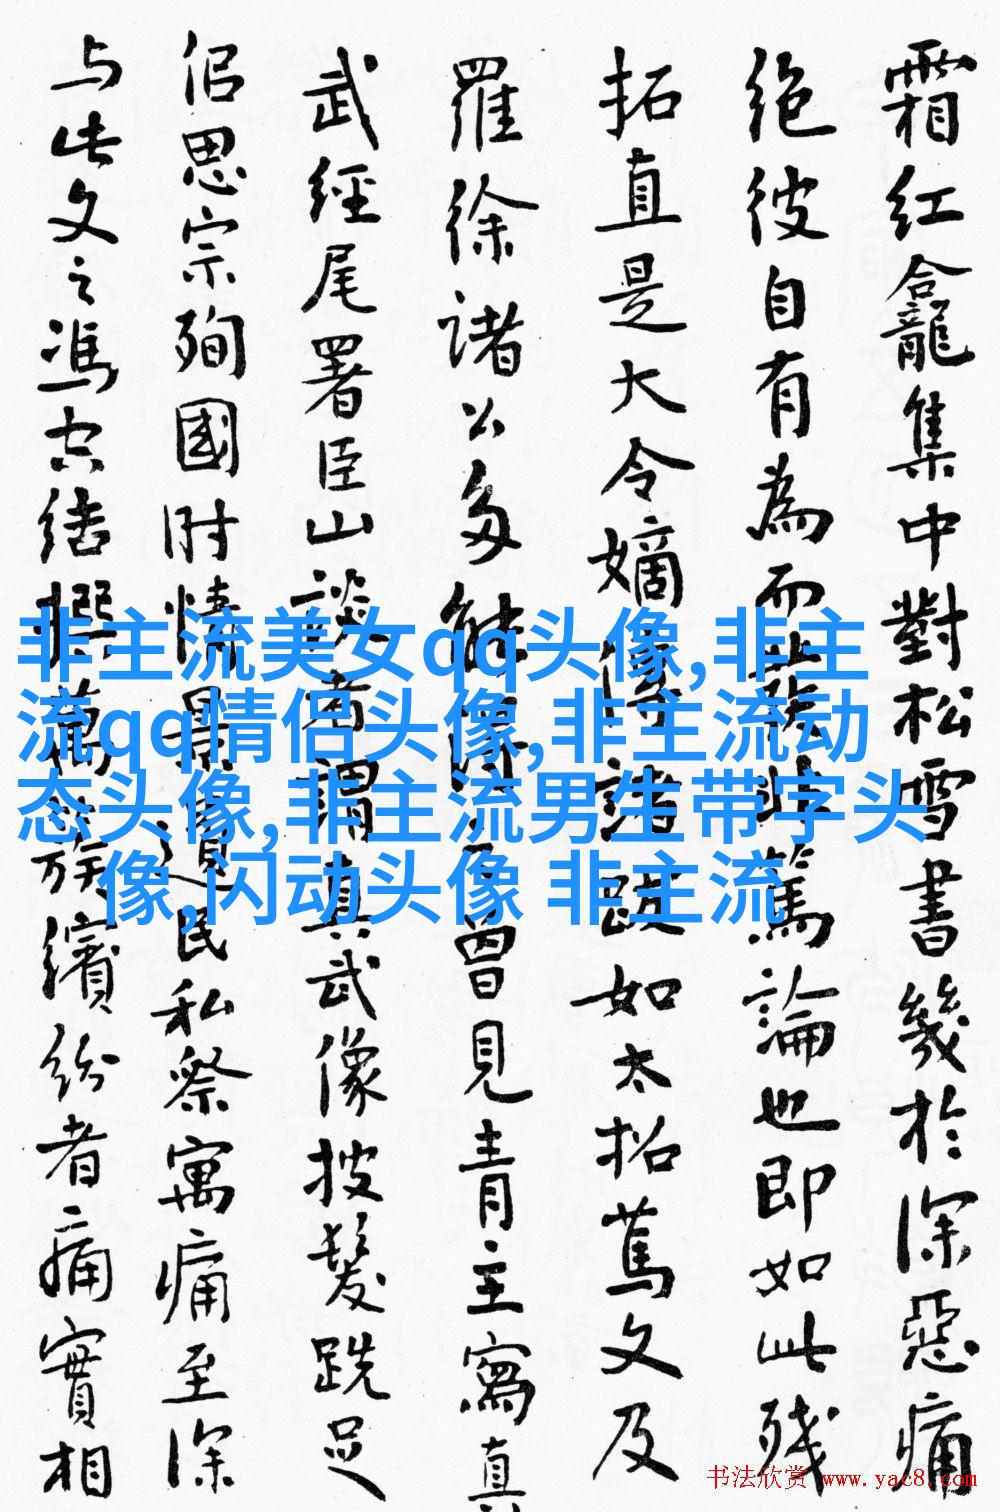 霜红龕集中對松雪書幾於深惡痛
绝彼自有為而發非篤論也即如此残
拓直是大令嫡傳諸跋如太拓篤文及
羅徐諸公多能曾見青主寫真
武經尾署臣山談者謂真武像披髮跣足
侣思宗殉國时情景遺民私察寓痛至深
与此文之馮空结撰萬族繽纷者痛實相
非主流美女qq头像,非主
流qq情侣头像,非主流动
态头像,非主流男生带字头
像,闪动头像 非主流
书法欣赏 www.yac8.com